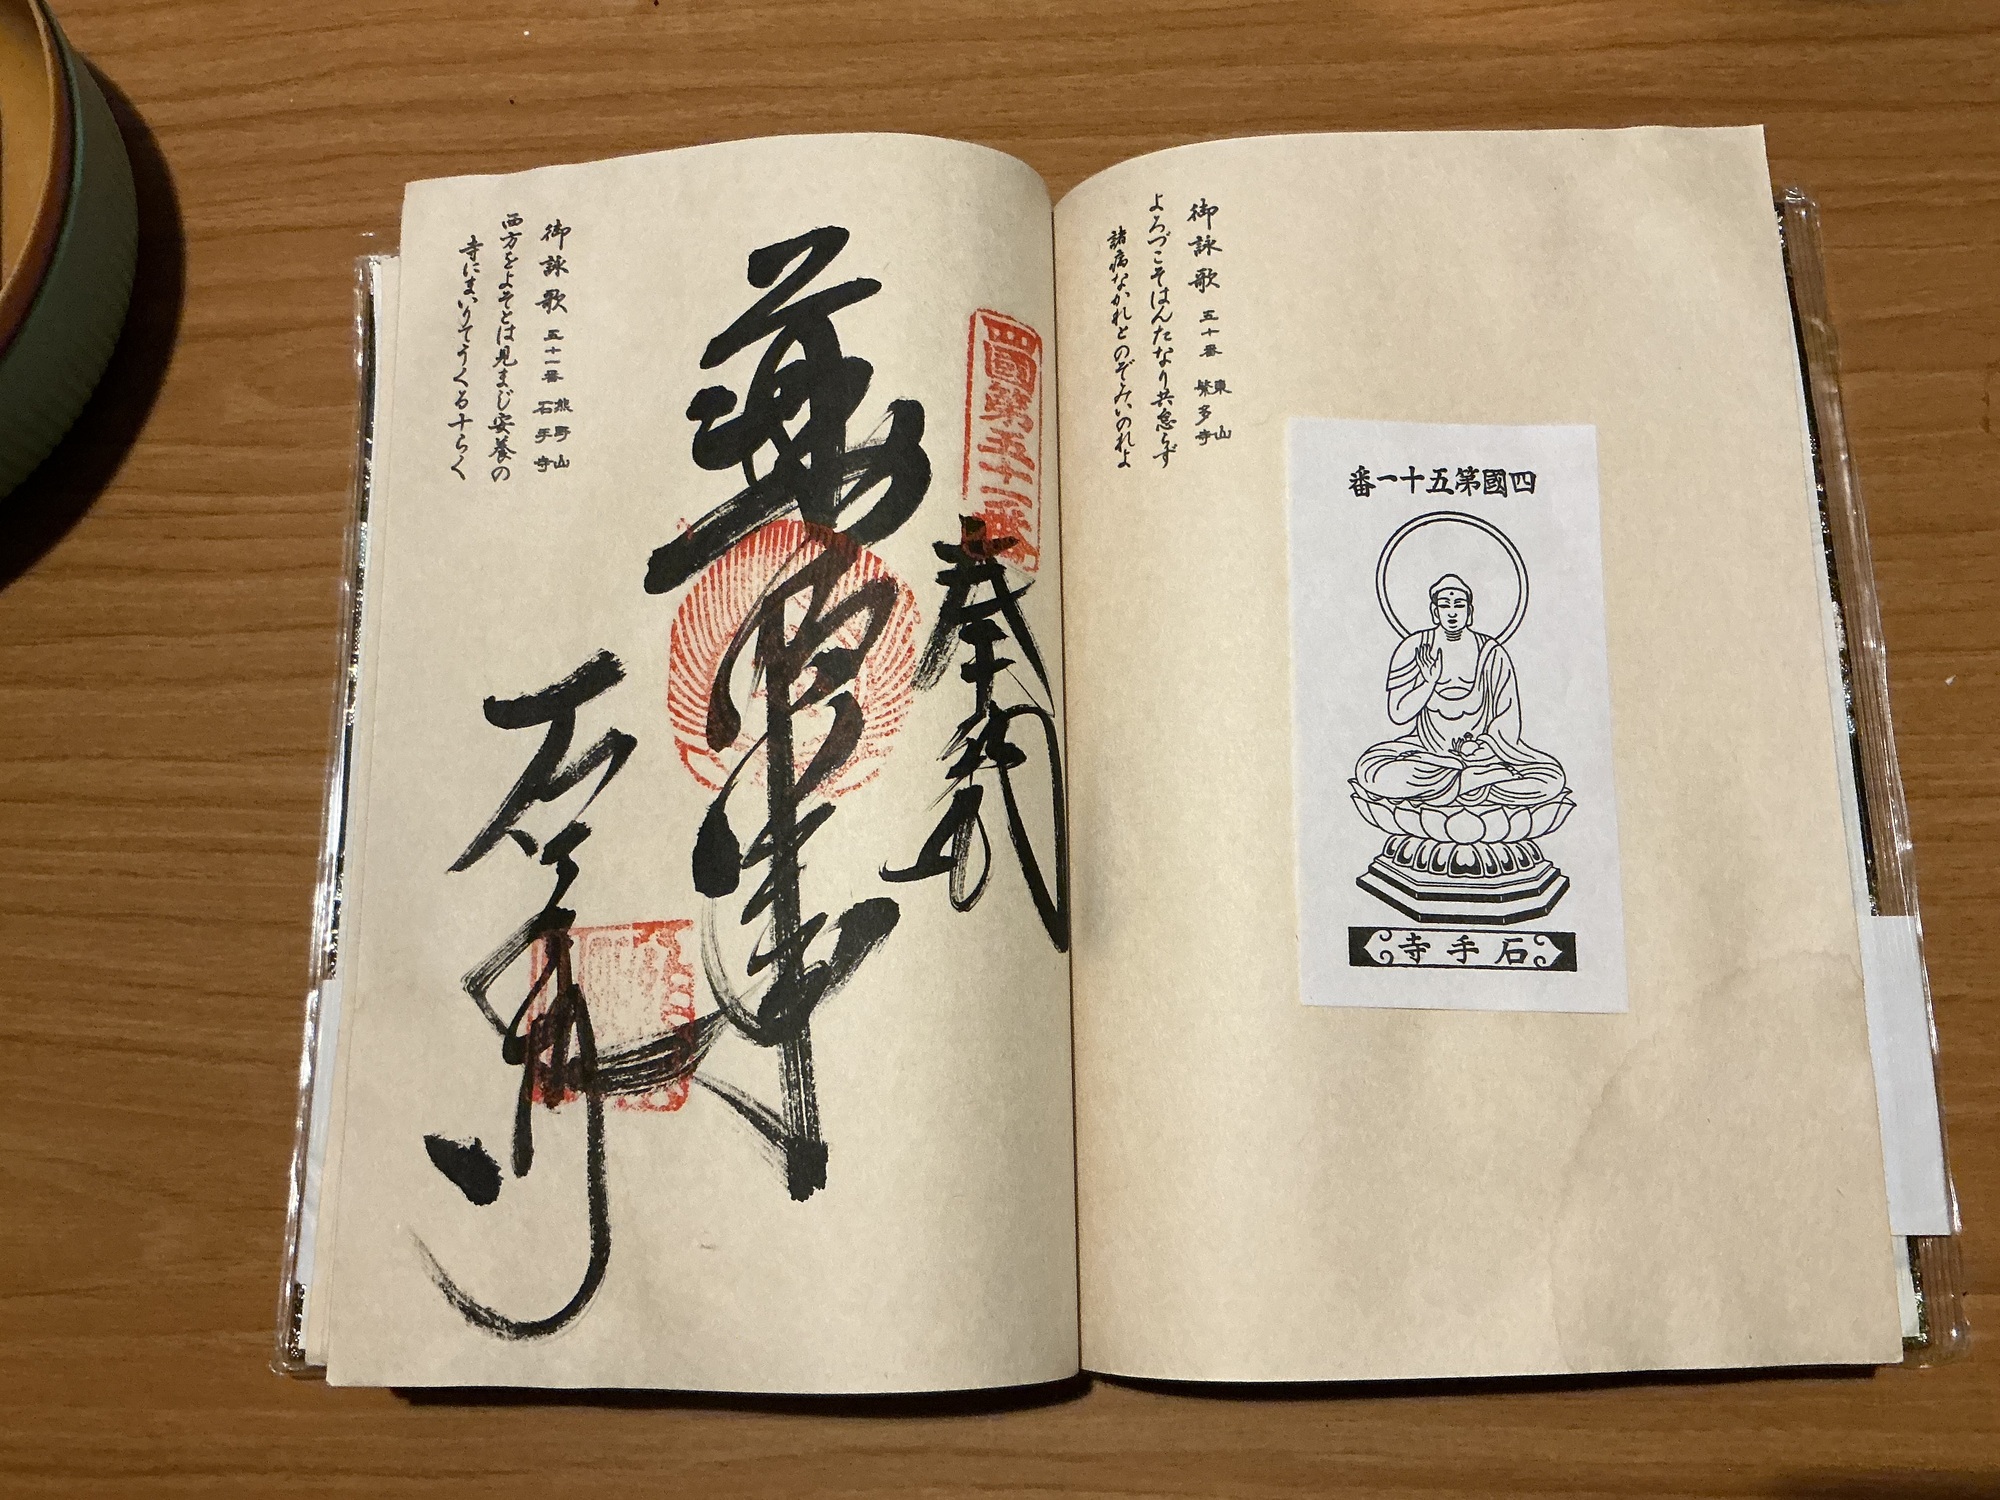 御詠歌 五十番 東山 繁多寺
よろづこそはんたなり共怠らず
諸病なかれとのぞみいのれよ
四國第五十一番
石手寺
四國第五十一番
奉納
石手寺
御詠歌 五十一番 熊野山 石手寺
西方をよそとは見まじ安養の
寺にまいりてうくる十らく